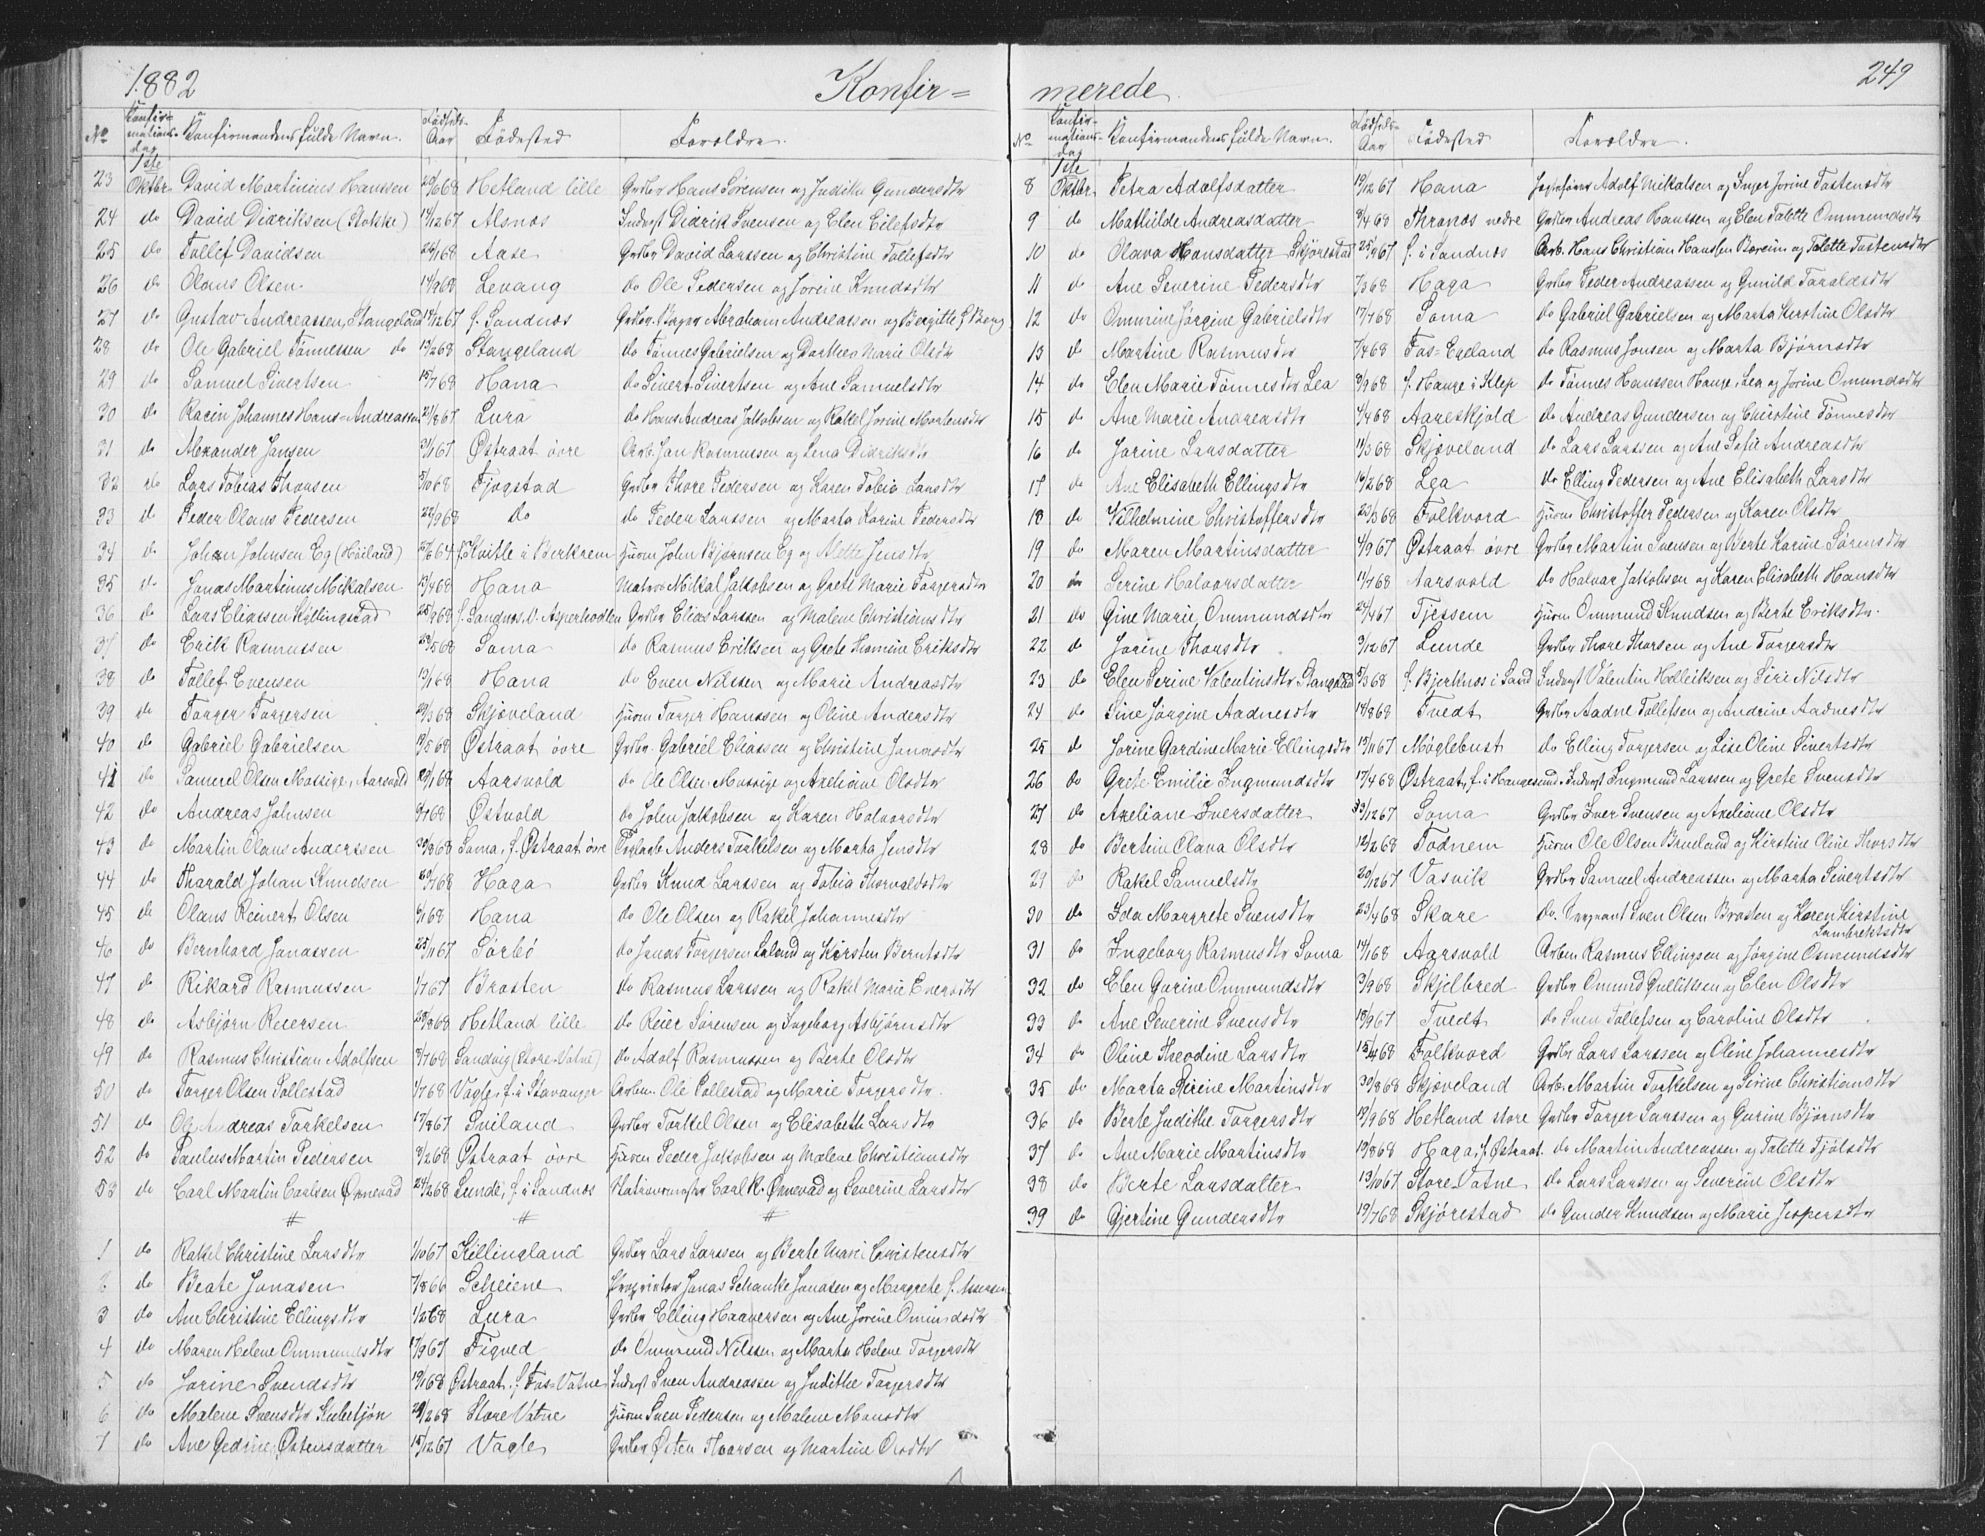 1882 Konfir=
No Konfirmationsdag Konfirmandens fulde Navn. Fødsels-Aar Fødested Forældre.
23 1ste Oktbr. David Martinius Hanssen 20/6 68 Hetland lille Grdbr Hans Sørensen og Judithe Gundersdtr
24 do David Didriksen (Stokke) 14/12 67 Alsnæs Inderst Didrik Svensen og Elen Eilefsdtr
25 do Tollef Davidsen 24/1 68 Aase Grdbr David Larssen og Christine Tollefsdtr
26 do Olaus Olsen 14/9 68 Levang do Ole Pedersen og Jorine Knudsdtr
27 do Gustav Andreassen, Stangeland 19/12 67 f. Sandnæs Grdbr. Bager Abraham Andreassen og Bergitte J. Berg
28 do Ole Gabriel Tønnessen do 13/2 68 Stangeland do Tønnes Gabrielsen og Dorthea Marie Olsdtr
29 do Samuel Sivertsen 15/7 68 Hana do Sivert Sivertsen og Ane Samuelsdtr
30 do Racin Johannes Hans-Andreassen 21/8 67 Lura do Hans Andreas Jakobsen og Rakel Jorine Mortensdtr
31 do Alexander Jansen 21/1 67 Østraat øvre Arb. Jan Rasmussen og Lena Didriksdtr
32 do Lars Tobias Thorsen 5/10 68 Fjogstad Grdbr Thore Pedersen og Karen Tobia Larsdtr
33 do Peder Olaus Pedersen 22/9 68 do do Peder Larssen og Marta Karine Pedersdtr
34 do Johan Johnsen Eg (Høiland) 25/6 64 f. Kvitle i Berkrem Huusm John Bjørnsen Eg og Alette Jensdtr
35 do Jonas Martinus Mikalsen 23/4 68 Hana Matros Mikal Jakobsen og Grete Marie Torgersdtr
36 do Lars Eliassen Kyllingstad 25/9 68 f. Sandnæs, V. Asperholten Grdbr Elias Larssen og Malene Christiansdtr
37 do Erik Rasmussen 29/5 68 Soma do Rasmus Eriksen og Grete Tomine Eriksdtr
38 do Tollef Evensen 13/1 68 Hana do Even Nilssen og Marie Andreasdtr
39 do Torger Torgersen 29/3 68 Skjæveland Huusm Torger Hanssen og Oline Andersdtr
40 do Gabriel Gabrielsen 19/5 68 Østraat øvre Grdbr. Gabriel Eliassen og Christine Jonasdtr
41 do Samuel Olsen Mossige, Aarsvold 29/1 68 Aarsvold do Ole Olsen Mossige og Axeliane Olsdtr
42 do Andreas Johnsen 9/7 68 Østvold do John Jakobsen og Karen Halvorsdtr
43 do Martin Olaus Anderssen 30/8 68 Soma, f. Østraat øvre Teglarb Anders Torkelsen og Marta Jensdtr
44 do Tharald Johan Knudsen 20/7 68 Haga Grdbr Knud Larssen og Tobia Thorvaldsdtr
45 do Olaus Reinert Olsen 4/1 68 Hana do Ole Olsen og Rakel Johannesdtr
46 do Bernhard Jonassen 25/11 67 Sørbø do Jonas Torgersen Leland og Kirsten Berntsdtr
47 do Rikard Rasmussen 1/7 67 Brasten do Rasmus Larssen og Rakel Marie Eversdtr
48 do Asbjørn Reiersen 23/8 68 Hetland lille do Reier Sørensen og Ingeborg Asbjørnsdtr
49 do Rasmus Christian Adolfsen 3/7 68 Sandvig (Store-Vatne) do Adolf Rasmussen og Berte Olsdtr
50 do Torger Olsen Pollestad 1/7 68 Vagle, f. i Stavanger Arbm. Ole Pollestad og Marie Torgersdtr.
51 do Ole Andreas Torkelsen 17/8 67 Sviland Grdbr Torkel Olsen og Elisabeth Larsdtr
52 do Paulus Martin Pedersen 3/2 68 Østraat øvre Huusm Peder Jakobsen og Malene Christiansdtr
53 do Carl Martin Carlsen Ørnevad 24/2 68 Lunde, f. i Sandnæs Stationsmester Carl K. Ørnevad og Severine Larsdtr
# # #
1 do Rakel Christine Larsdtr 1/10 67 Killingland Grdbr Lars Larssen og Berte Marie Christensdtr
2 do Beate Jonasen 7/8 66 Scheiene Proprietær Jonas Schanke Jonasen og Margrete J. Assersen
3 do Ane Christine Ellingsdtr 1/2 68 Lura Grdbr Elling Haaversen og Ane Jorine Omundsdtr
4 do Maren Helene Ommundsdtr 17/9 67 Figved do Ommund Nilssen og Marta Helene Torgersdtr
5 do Jorine Svendsdtr 19/1 68 Østraat, f. Fos-Vatne Inderst Sven Andreassen og Judithe Torgersdtr
6 do Malene Svensdtr Kubetjøn 29/2 68 Store Vatne Huusm Sven Pedersen og Malene Monsdtr
7 do Ane Gedine Østensdatter 15/12 67 Vagle Grdbr Østen Thorsen og Martine Olsdtr
merede. 249
No Konfirmationsdag Konfirmandens fulde Navn. Fødsels-Aar Fødested Forældre.
8 1ste Oktbr. Petra Adolfsdatter 19/12 67 Hana Jagtefører Adolf Mikalsen og Inger Jorine Tostensdtr
9 do Mathilde Andreasdatter 8/4 68 Thronæs nedre Grdbr Andreas Hanssen og Elen Talette Ommundsdtr
10 do Olava Hansdatter Skjørestad 25/9 67 f. i Sandnæs Arb. Hans Christian Hansen Bæreim og Talette Tostensdtr
11 do Ane Severine Pedersdtr 7/3 68 Haga Grdbr Peder Andreassen og Gunild Taraldsdtr
12 do Ommine Jørgine Gabrielsdtr 17/7 68 Soma do Gabriel Gabrielsen og Marta Kerstine Olsdtr
13 do Martine Rasmusdtr 7/4 68 Fos-Egeland do Rasmus Jonsen og Marta Bjørnsdtr
14 do Elen Marie Tønnesdtr Lea 8/9 68 f. Hauge i Klep do Tønnes Hanssen Hauge, Lea og Jorine Omundsdtr
15 do Ane Marie Andreasdtr 4/4 68 Aareskjold do Andreas Gundersen og Christine Tønnesdtr
16 do Jorine Larsdatter 11/3 68 Skjæveland do Lars Larssen og Ane Sofie Andreasdtr
17 do Ane Elisabeth Ellingsdtr 14/2 68 Lea do Elling Pedersen og Ane Elisabeth Larsdtr
18 do Vilhelmine Christoffersdtr 23/3 68 Folkvord Huusm Christoffer Pedersen og Karen Olsdtr
19 do Maren Martinsdatter 4/9 67 Østraat øvre Grdbr Martin Svensen og Berte Karine Sørensdtr
20 do Serine Halvorsdatter 11/7 68 Aarsvold do Halvor Jakobsen og Karen Elisabeth Hansdtr
21 do Gine Marie Ommundsdtr 24/4 67 Tjessem Huusm Ommund Knudsen og Berte Eriksdtr.
22 do Jorine Thorsdtr 3/12 67 Lunde Grdbr Thore Thorsen og Ane Torgersdtr
23 do Elen Serine Valentinsdtr Stangeland 5/3 68 f. Bjerknæs i Sand Inderst Valentin Helliksen og Siri Nilsdtr
24 do Sine Jørgine Aadnesdtr 14/8 68 Tvedt Grdbr Aadne Tollefsen og Andrine Aadnesdtr
25 do Jorine Gardine Marie Ellingsdtr 13/11 67 Møglebust do Elling Torgersen og Lise Oline Sivertsdtr
26 do Grete Emilie Ingmundsdtr 17/4 68 Østraat, f. i Haugesund Inderst Ingmund Larssen og Grete Svensdtr
27 do Axeliane Iversdatter 23/12 67 Soma Grdbr Iver Svensen og Axeliane Olsdtr
28 do Bertine Olava Olsdtr 12/2 68 Todnem Huusm Ole Olsen Brueland og Kirstine Oline Thorsdtr
29 do Rakel Samuelsdtr 20/12 67 Vasvik Grdbr Samuel Andreassen og Marta Sivertsdtr
30 do Ida Margrete Svensdtr 23/4 68 Skare do. Sergeant Sven Olsen Brosten og Karen Kirstine Lambrektsdtr
31 do Ingeborg Rasmusdtr Soma 14/1 68 Aarsvold Arbm. Rasmus Ellingsen og Jørgine Osmundsdtr
32 do Elen Gurine Ommundsdtr 3/9 68 Skjelbred Grdbr Ommund Gullitssen og Elen Olsdtr
33 do Ane Severine Svensdtr 18/9 67 Tvedt do Sven Tollefsen og Caroline Olsdtr
34 do Oline Theodine Larsdtr 15/4 68 Folkvord Grdbr Lars Larssen og Oline Johannesdtr
35 do Marta Serine Martinsdtr 30/8 68 Skjæveland Arb. Martin Torkelsen og Serine Christiansdtr
36 do Berte Judithe Torgersdtr 19/9 68 Hetland store Grdbr Torger Larssen og Gurine Bjørnsdtr
37 do Ane Marie Martinsdtr 19/8 68 Haga, f. Østraat. do Martin Andreassen og Talette Fjølsdtr
38 do Berte Larsdatter 13/10 67 Store Vatne do Lars Larssen og Severine Olsdtr
39 do Gjertine Gundersdtr 19/7 68 Skjørestad do Gunder Knudsen og Marie Jespersdtr